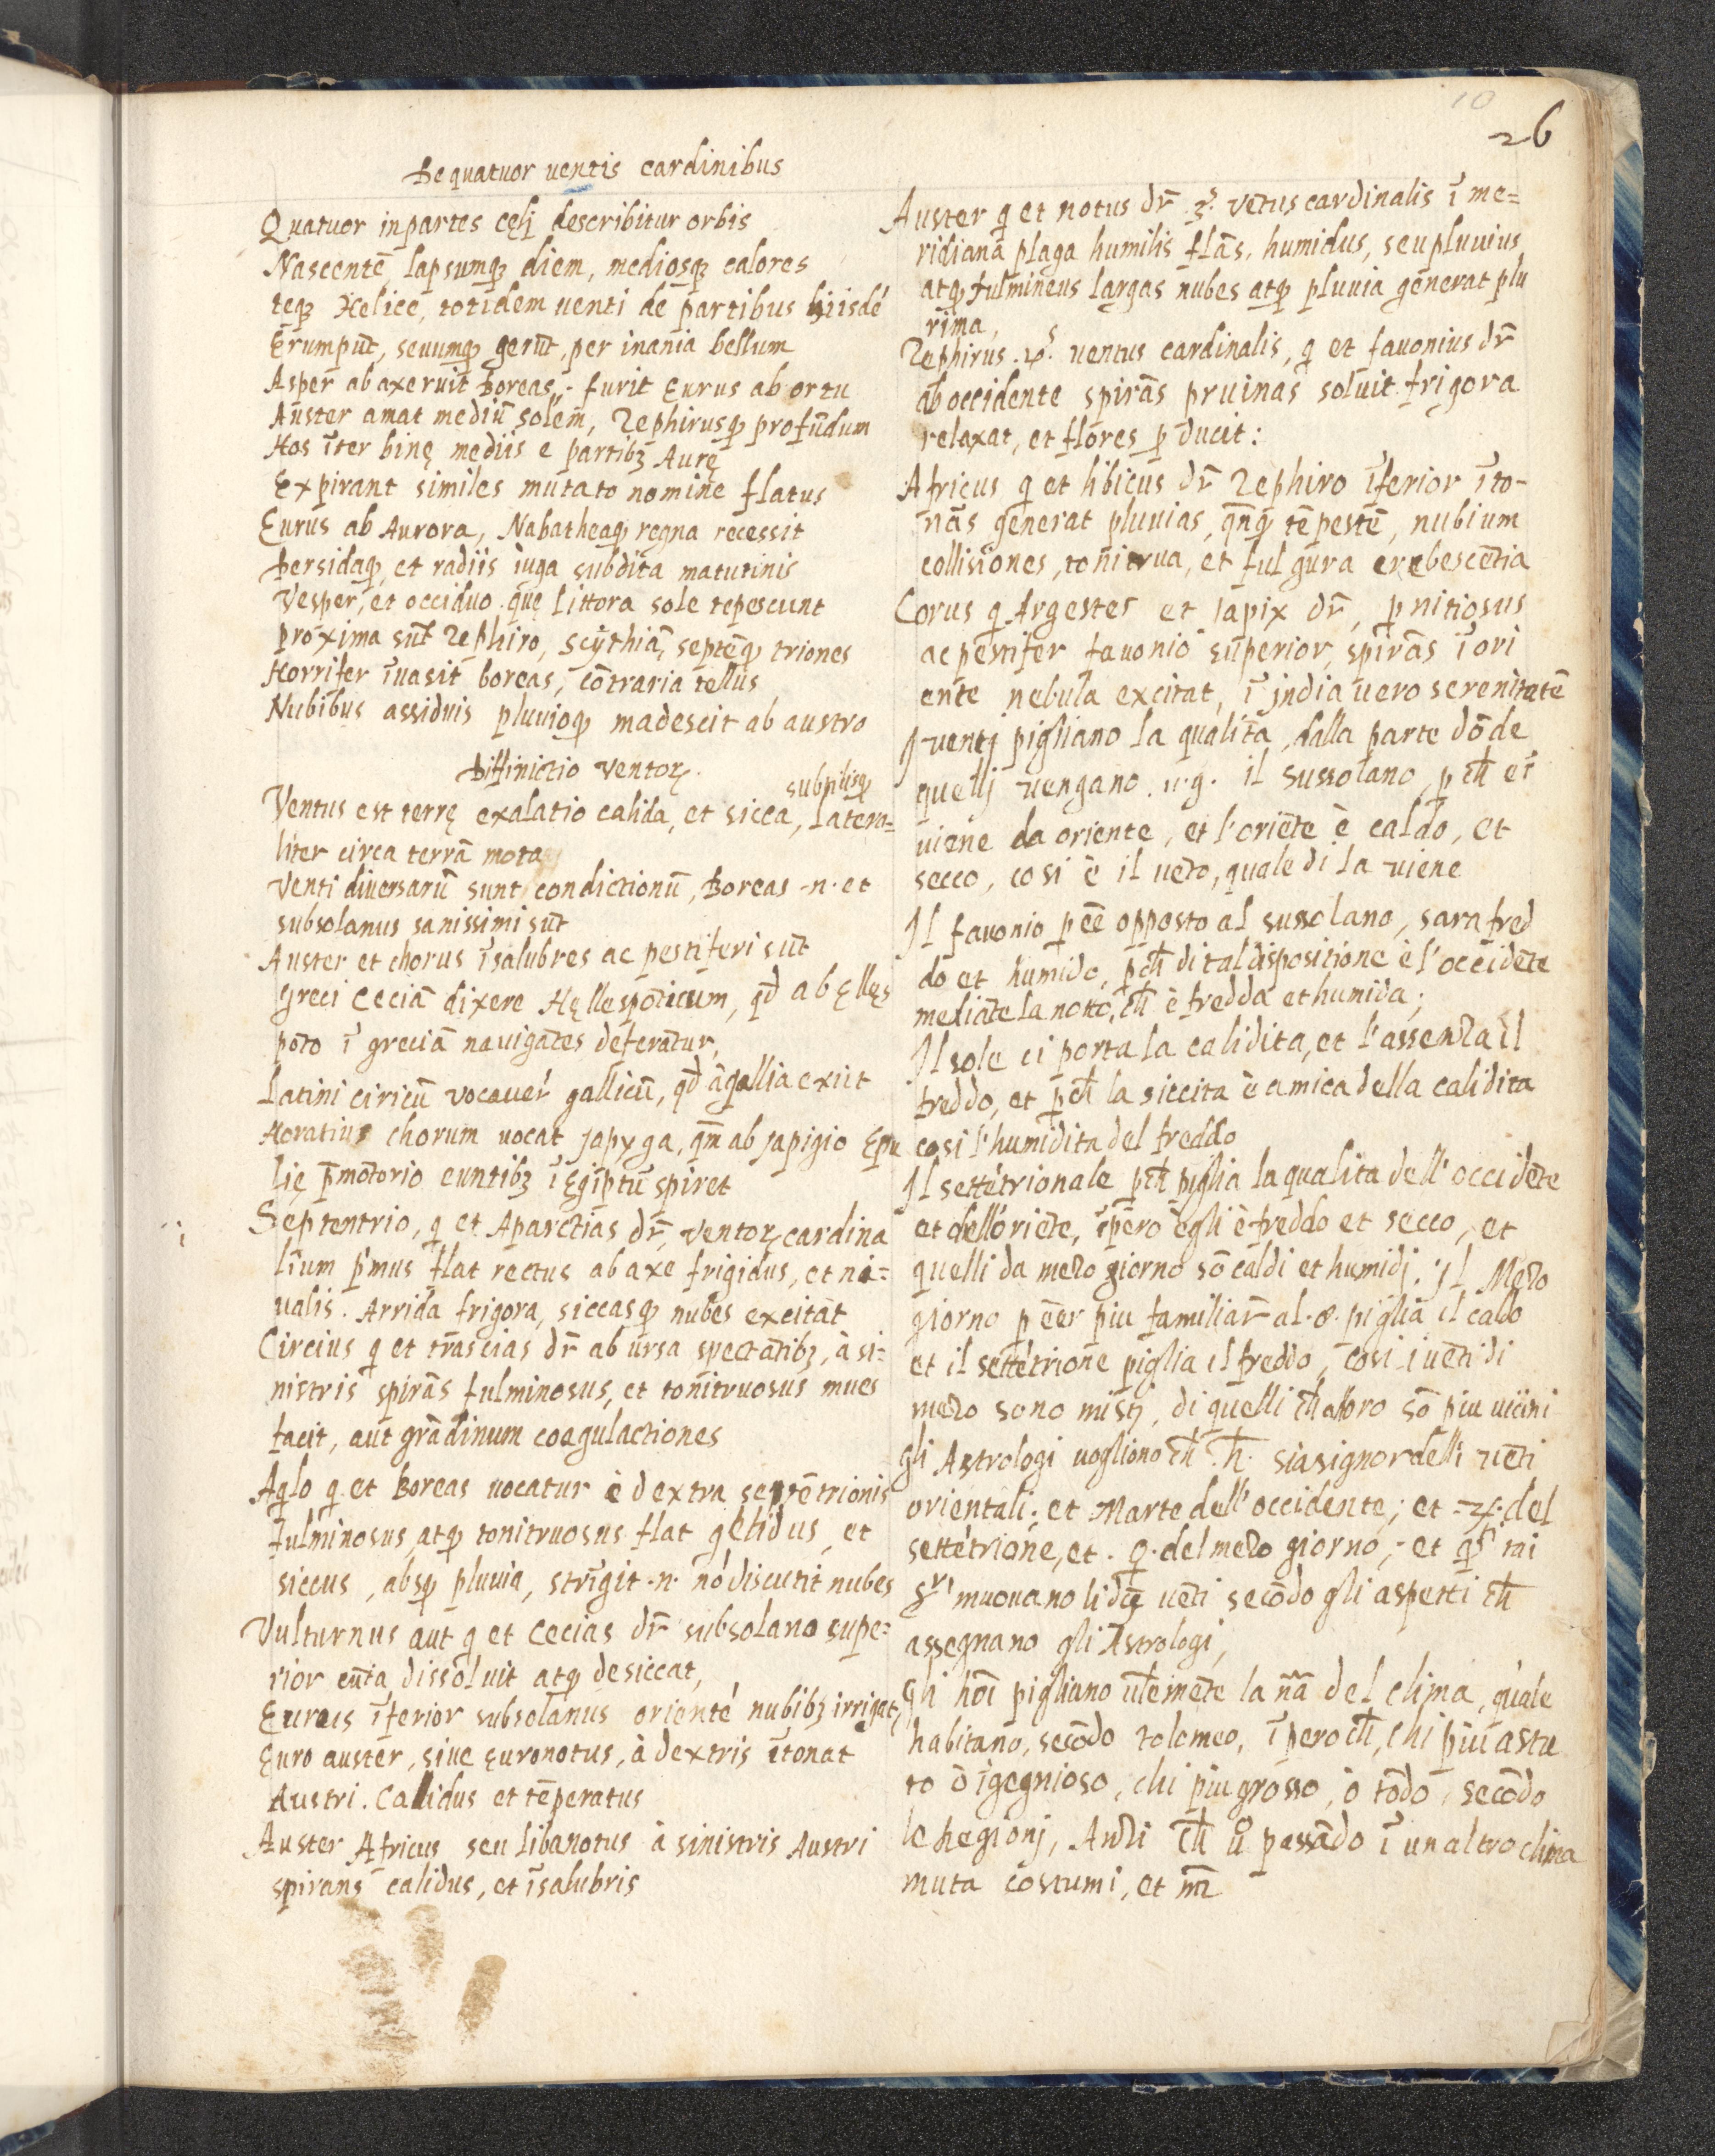 10
26
De quatuor uentis cardinibus
Quatuor in partes cęlj describitur orbis
Nascentē lapsumq; diem, mediosq; calores
teq; Helicē, totidem uenti de partibus hiisdē
Erumpūt, seuumq; gerūt, per inania bellum
Asper ab axe ruit Boreas, furit Eurus ab ortu
Auster amat mediū solem, Zephirusq; profūdum
Hos īter binę mediis e partibꝫ Aurę
Expirant similes mutato nomine flatus
Eurus ab Aurora, Nabatheaq; regna recessit
Persidaq; et radiis iuga subdita matutinis
Vesper, et occiduo quę littora sole tepescunt
proxima sūt Zephiro, Scÿthiā, septēq; triones
Horrifer īuasit boreas, cōtraria tellus
Nubibus assiduis pluuioq; madescit ab austro
Diffinictio ventoꝝ.
subpilisq;
Ventus est terrę exalatio calida, et sicca, latera=
liter circa terrā mota
Venti diuersarū sunt condictionū, Boreas .n. et
subsolanus sanissimi sūt
Auster et chorus īsalubres ac pestiferi sūt
Greci Ceciā dixere Hęllespōticum, qd̄ ab ęllęs
pōto ī greciā nauigātes deferātur,
Latini ciricū vocauer̄ gallicū, qd̄ ā gallia exiit
Horatius chorum uocat Japyga, qm̄ ab Japigio Epu
lię p̄mōtorio euntibꝫ ī Egiptū spiret
Septentrio, q et Aparctias dr̄, ventoꝝ cardina
lium p̄mus flat rectus ab axe frigidus, et ni=
ualis. Arrida frigora, siccasq; nubes excitāt
Circius q et trāscias dr̄ ab ursa spectātibꝫ, à si=
nistris spirās fulminosus, et tonitruosus mues
facit, aut grādinum coagulactiones
Aqlo q et Boreas uocatur è dextra septētrionis
fulminosus, atq; tonitruosus flat gelidus, et
siccus, absq; pluuia, strīgit .n. nō discutit nubes
Vulturnus aut q et Cecias dr̄ subsolano supe=
rior cūta dissoluit atq; desiccat,
Eurus īferior subsolanus orientē nubibꝫ irrigat,
Euro auster, siue euronotus, à dextris ītonat
Austri. Calidus et tēperatus
Auster Africus seu libanotus à sinistris Austri
spirans calidus, et īsalubris
Auster q et notus dr̄ .3.ˢ vētus cardinalis ī me=
ridianā plaga humilis flās, humidus, seu pluuius
atq; fulmineus largas nubes atq; pluuia generat plu
rima,
Zephirus .4.ˢ uentus cardinalis, q et fauonius dr̄
ab occidente spirās pruinas soluit frigora
relaxat, et flores p ducit:
Africus q et libicus dr̄ Zephiro īferior īto-
nās generat pluuias, qn̄q; tēpestē, nubium
collisiones, tonitrua, et fulgura erebescētia
Corus q Argestes et iapix dr̄, pnitiosus
ac pestifer fauonio superior, spirās ī ori
ente nebula excitat, ī jndia uero serenitatē
J uentj pigliano la qualita, dalla parte dōde
quellj vengano .u.g. il sussolano, p ch̄ ei
uiene da oriente, et l'oriēte è caldo, et
secco, cosi è il uēto, quale di la viene
Il fauonio p eē opposto al sussolano, sara fred
do et humido, pch̄ di tal dispositione è l'occidēte
mediāte la notte, ch̄ è fredda et humida;
Il sole ci porta la calidita, et l'assenza il
freddo, et pch̄ la siccita è amica della calidita
cosi l'humidita del freddo
Il settētrionale pch̄ piglia la qualita dell'occidēte
et dell'oriēte, īpero egli è freddo et secco, et
quelli da mezo giorno sō caldi et humidj. Il Mezo
giorno p eēr piu familiar̄ al .☉. piglia il caldo
et il settētrione piglia il freddo, cosi i uēti di
mezo sono mistj, di quelli ch̄ alloro sō piu uicini
gli Astrologi uogliono ch̄ .♄. sia signor delli uēti
orientali; et Marte dell'occidente; et .♃. del
settētrione, et .♀. del mezo giorno; et qsti tai
muouano li dc̄i uēti secōdo gli aspetti ch̄
assegnano gli Astrologi,
Gli hoī pigliano ulemēte la nā̄ del clima, quale
habitano, secōdo Tolomeo, īpero ch̄, chi piu astu
to ō īgegnioso, chi piu grosso, ò tōdo, secōdo
le hegionj, Anzi ch̄ passādo ī un altro clima
muta costumi, et